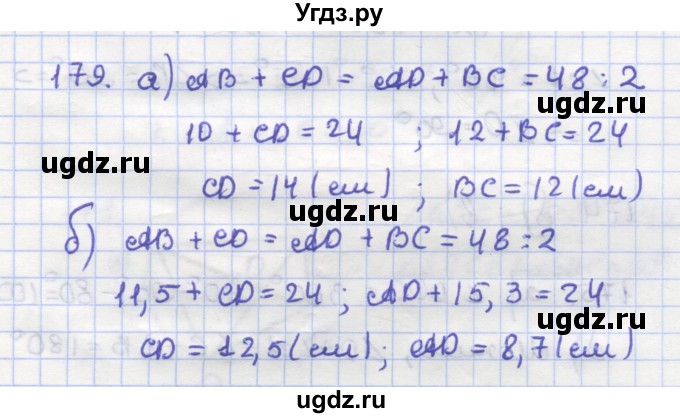 Угдз.ру
179. а) AB + CD = AD + BC = 48 : 2
10 + CD = 24 ; 12 + BC = 24
ugdz.ru ugdz.ru
CD = 14 (см) ; BC = 12 (см)
ugdz.ru
б) AB + CD = AD + BC = 48 : 2
ugdz.ru
11,5 + CD = 24 ; AD + 15,3 = 24
ugdz.ru ugdz.ru
CD = 12,5 (см) ; AD = 8,7 (см)
ugdz.ru